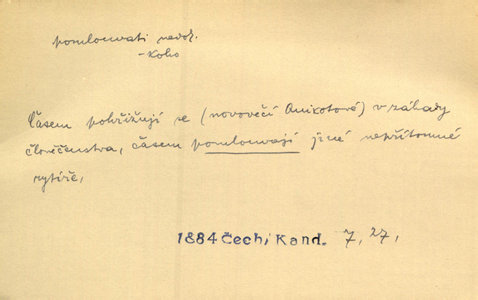 pomlouvati nedok.
-koho
Časem pohřižují se (novověcí Quixotové) v záhady
člověčenstva, časem pomlouvají jiné nepřítomné
rytíře,
1884 Čech, Kand. 7, 27,